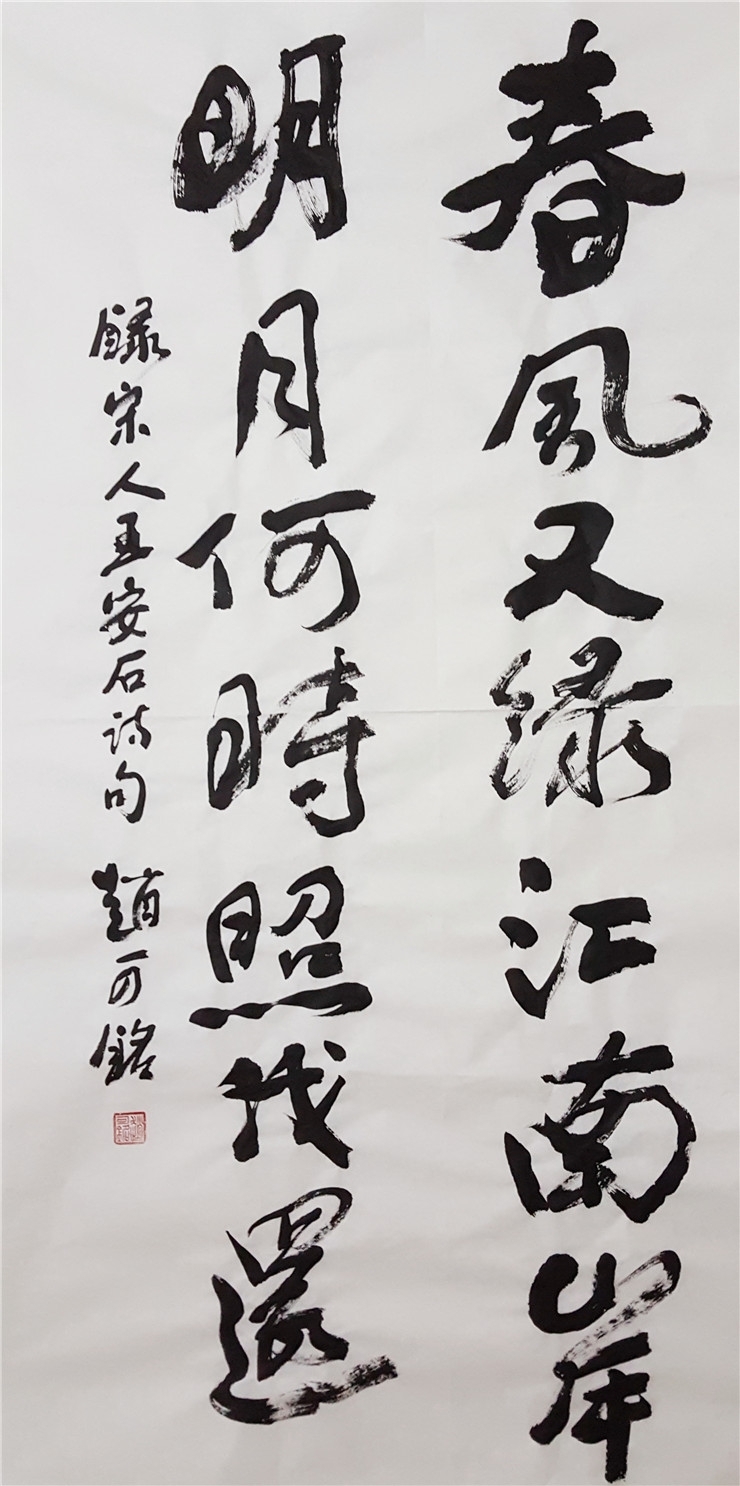 春风又绿江南岸
明月何時照我還
録宋人王安石诗句 趙可銘